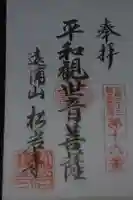 奉拝
平和観世音菩薩
遠浦山 松岩寺